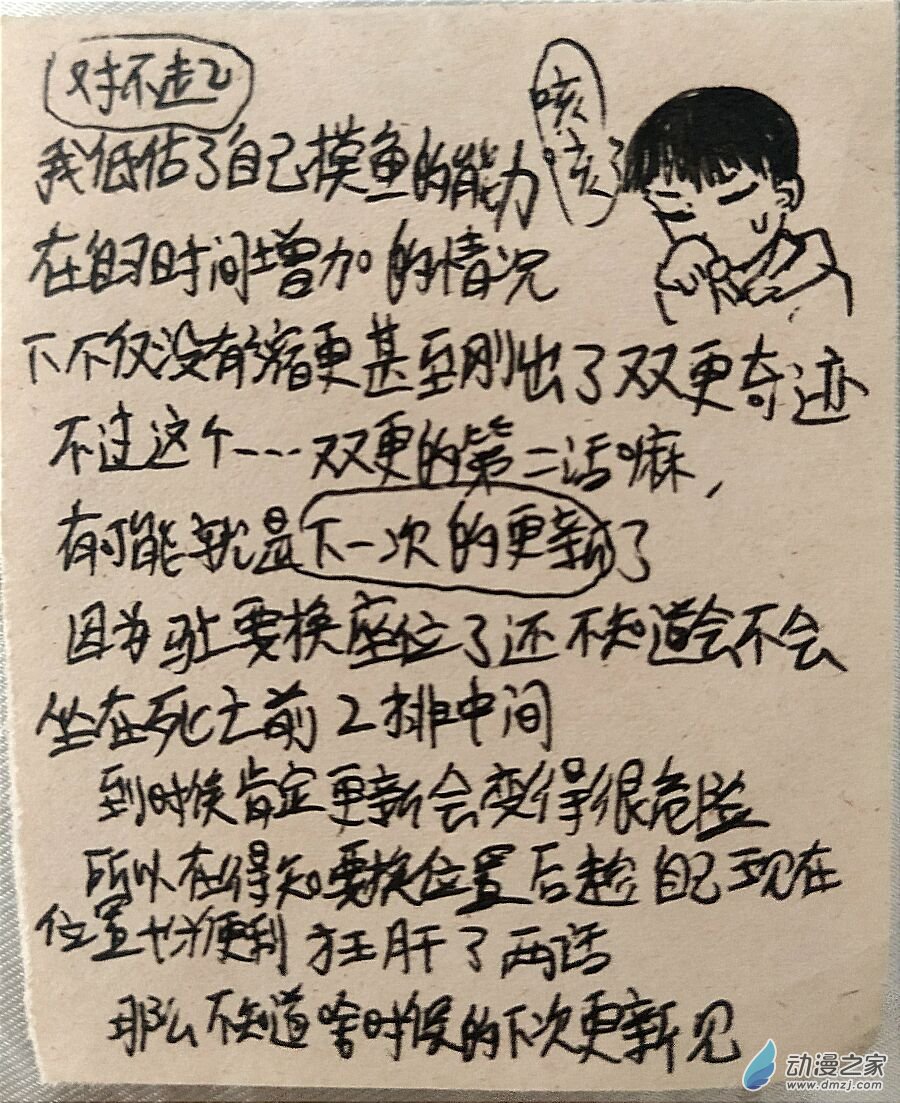 对不起
咳
咳
我低估了自己摸鱼的能力了
在自习时间增加的情况
下不仅没有缩更甚至刚出了双更奇迹
不过这个----双更的第二话嘛,
有可能就是下一次的更新了
因为马上要换座位了还不知道会不会
坐在死亡前2排中间
到时候肯定更新会变得很危险
所以在得知要换位置后趁自己现在
位置比较便利狂肝了两话
那么不知道啥时候的下次更新见
动漫之家
www.dmzj.com